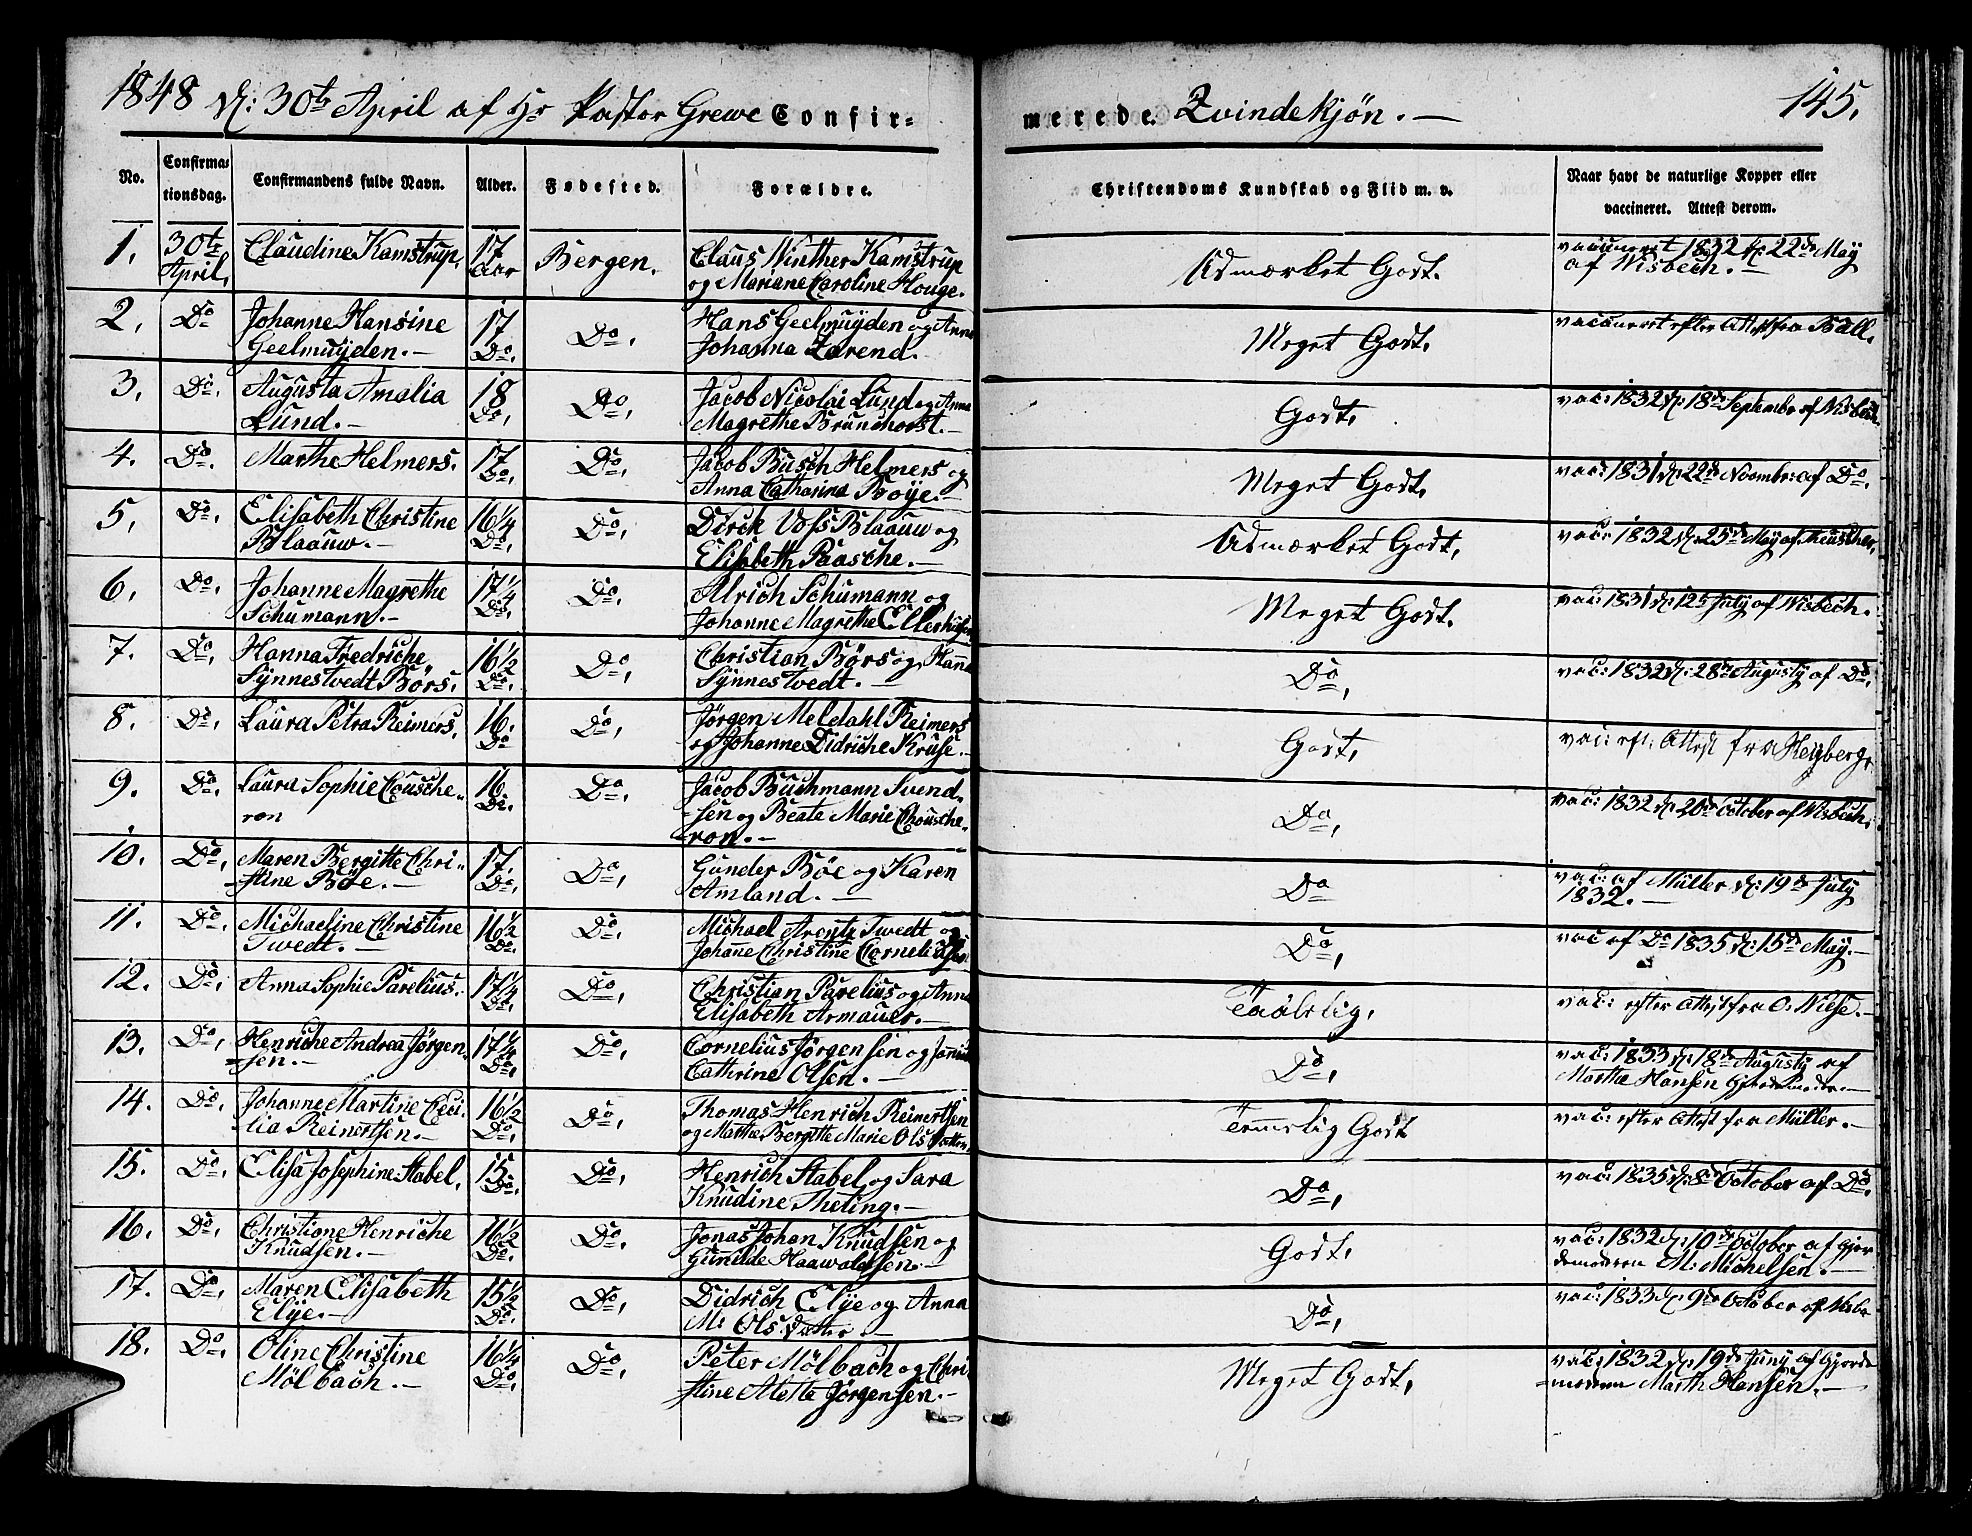 1848 d: 30te April af Hr Pastor Grewe Confir=
merede. Qvindekjøn.—
145.
No.
Confirma=
tionsdag.
Confirmandens fulde Navn.
Alder.
Fødested.
Forældre.
Christendoms Kundskab og Flid m. v.
Naar havt de naturlige Kopper eller
vaccineret. Attest derom.
1. 30te Claudine Kamstrup. 17 Bergen. Claus Winther Kamstrup Udmærket Godt. vaccineret 1832 d: 22de May
April. aar og Mariane Caroline Houge. af Wisbech.—
2. Do Johanne Hansine 17 Do. Hans Geelmuyden og Anna Meget Godt. vaccineret efter Attest fra Ball.
Geelmuyden.— Do. Johanna Zarend.
3. Do. Augusta Amalia 18 Do. Jacob Nicolai Lund og Anna Godt. vac: 1832 d: 18de September af Wisbech.
Lund.— Do. Magrethe Brunchorst.—
4. Do. Marthe Helmers. 17 Do. Jacob Busch Helmers og Meget Godt. vac: 1831 d: 22de November: af Do.
Do. Anna Catharina Boye.—
5. Do. Elisabeth Christine 16 1/4 Do. Dirck Voss Blaauw og Udmærket Godt. vac: 1832 d: 25de May af
Blaauw.— Do. Elisbeth Paasche.—
6. Do. Johanne Magrethe 17 1/4 Do. Ulrich Schumann og Meget Godt. vac: 1831 d: 12te July af Wisbech.
Schumann.— Do. Johanne Magrethe Ellerhusen
7. Do. Hanna Fredriche 16 1/2 Do. Christian Börs og Hanna Do. vac: 1832 d: 28de Augusty af Do.
Synnestvedt Börs. Do. Synnestvedt.—
8. Do. Laura Petra Reimers. 16. Do. Jørgen Meldahl Reimers Godt. vac: eft: Attest fra Heyberg.
Do og Johanne Didriche Kruse.—
9. Do. Laura Sophie Cousche= 16. Do. Jacob Buchmann Svend= Do. vac: 1832 d: 20de October af Wisbech.
ron Do. =sen og Beate Marie Chousche=
=ron.—
10. Do. Maren Bergitte Chri= 17. Do. Gunder Böe og Karen Do vac: af Müller d: 19de July
=stine Böe.— Do. Amland.— 1832.—
11. Do. Michaeline Christine 16 1/2 Do. Michael Arentz Twedt og Do. vac af Do 1835 d: 15de May.—
Twedt.— Do. Johane Christine Corneliussen
12. Do. Anna Sophie Parelius. 17 1/4 Do. Christian Parelius og Anna Taalelig. vac: efter Attest fra O. Wilse.—
Do. Elisabeth Armauer.—
13. Do. Henriche Andrea Jørgen= 17 1/4 Do. Cornelius Jørgensen og Do. vac: 1833 d: 18de Augusty af
=sen.— Do. Cathrine Olsen.— Martha Hansen Gjordemoder.—
14. Do. Johanne Martine Ceci= 16 1/2 Do. Thomas Henrich Reinertsen Temelig Godt vac: efter Attest fra Müller.—
lia Reinertsen.— Do. og Martha Bergitte Marie Olsdatter.
15. Do. Elisa Josephine Stabel. 15 Do. Henrich Stabel og Sara Do. vac: 1835 d: 8de October af Do.
Do. Knudine Theting.—
16. Do. Christiane Henriche 16 1/2 Do. Jonas Johan Knudsen og Godt. vac: 1832 d: 10de October af Gjor=
Knudsen.— Do. Gunilde Haawaldsen.— demoderen M: Michelsen.—
17. Do. Maren Elisabeth 15 1/2 Do. Didrich Elye og Anna Do. vac: 1833 d: 9de October af
Elye.— Do. M: Olsdatter.—
18. Do. Oline Christine 16 1/4 Do. Peter Mölbach og Chri= Meget Godt. vac: 1832 d: 19de Juny af Gjorde=
Mölbach.— Do. stine Alette Jørgensen.— =moderen Marth Hansen.—